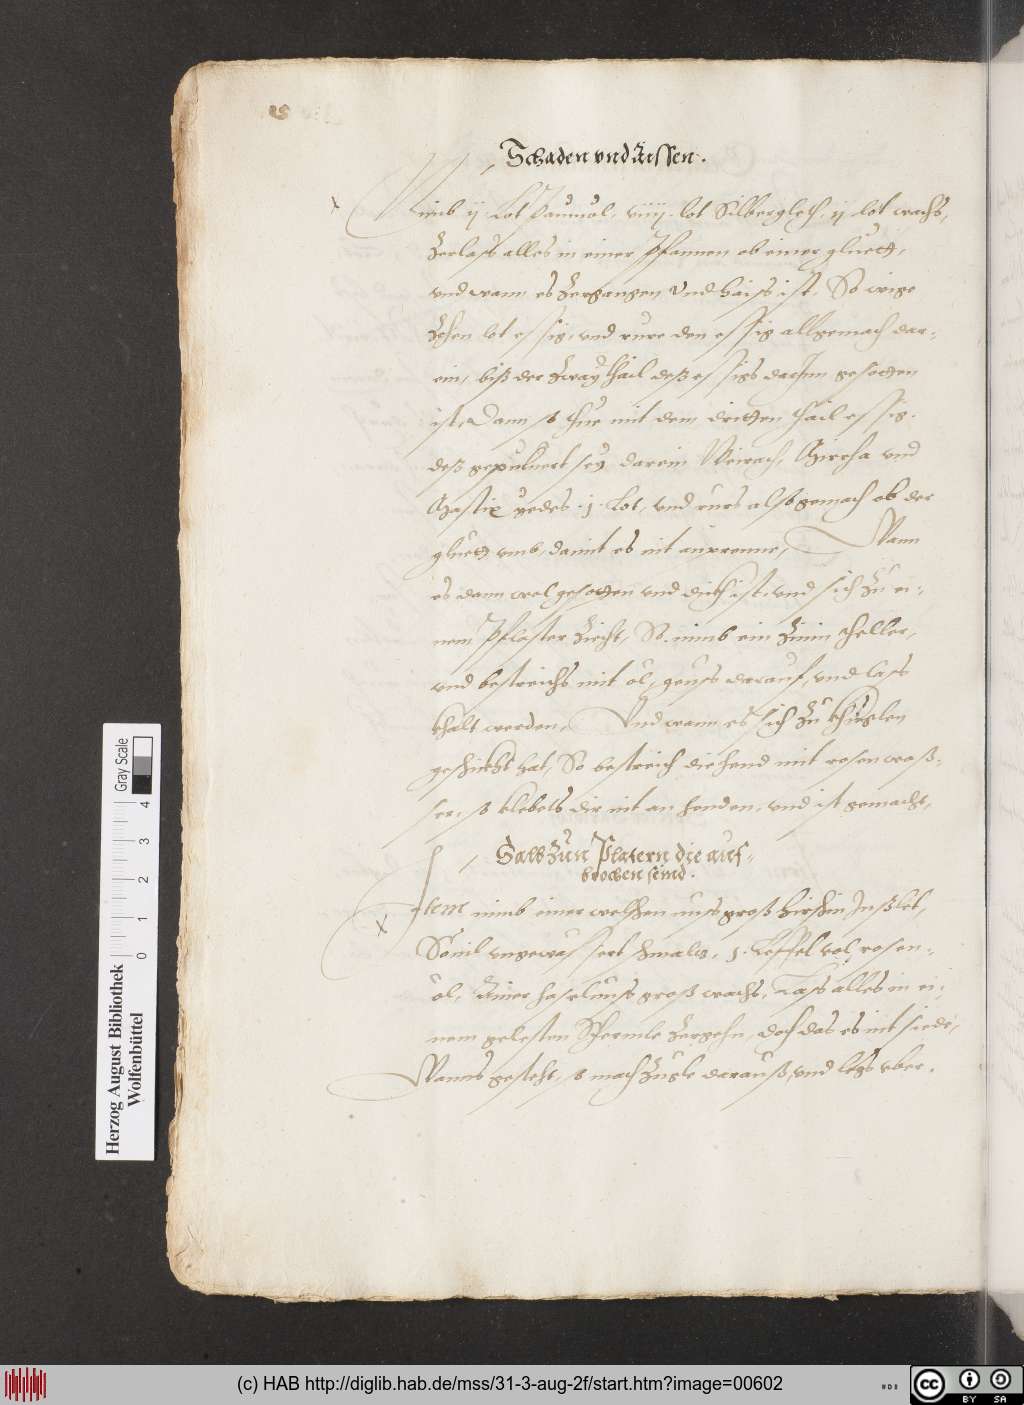 Schaden vnd Aissen.
Nimb ij Lot Paumöl, viiij lot Silbergleth, ij lot wachs,
Zerlass alles in einer Pfannen ob einer gluet,
vnd wann es Zergangen vnd haiss ist, So wige
Zehen lot essig, vnd rüre den essig allgemach dar-
ein, biß der Zway thail deß essigs darinn gesotten
ist, Dann so thue mit dem dritten thail essig,
deß gepuluert sey darein Weirach, Mirrha vnd
Mastix yedes .j. Lot, vnd rürs also gemach ob der
gluet vmb, damit es nit anprenne, Wann
es dann wol gesotten vnd dick ist, vnd sich Zu ei-
nem Pflaster Zeicht, So nimb ein Zinin theller,
vnd bestreichs mit öl, geuss darauf, vnd lass
khalt werden, Vnd wann es sich Zu khuglen
geschickht hat, So bestreich die hend mit rosen waß-
ser, so klebets dir nit an henden, vnd ist gemacht,
Salb Zun Platern die auf-
brochen seind.
Item nimb einer welschen nuss groß hirschin Inßlet,
Souil vngewässert schmaltz, j. Leffel vol rosen-
öl, Ainer haselnuss groß wachs, Lass alles in ei-
nem Zergehn, doch das es nit siede,
Wanns gesteht, so mach Zugle darauß, vnd legs vber.
Gray Scale
0 1 2 3 4
Herzog August Bibliothek
Wolfenbüttel
(c) HAB http://diglib.hab.de/mss/31-3-aug-2f/start.htm?image=00602
cc BY SA